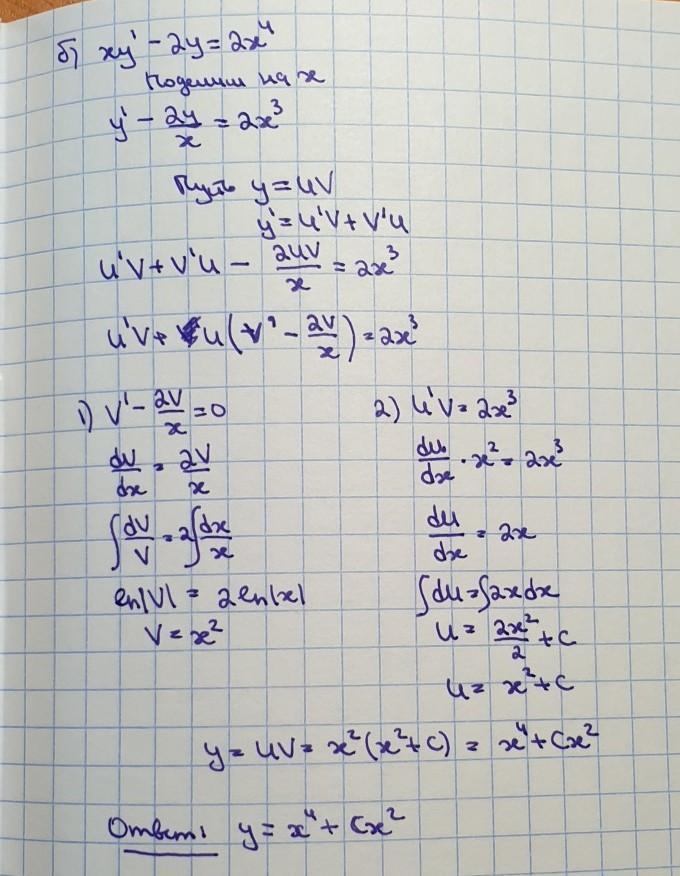 б) xy' - 2y = 2x⁴
Поделим на x
y' - 2y/x = 2x³
Пусть y = uv
y' = u'v + v'u
u'v + v'u - 2uv/x = 2x³
u'v + u(v' - 2v/x) = 2x³
1) v' - 2v/x = 0
dv/dx = 2v/x
∫dv/v = 2∫dx/x
ln|v| = 2ln|x|
v = x²
2) u'v = 2x³
du/dx · x² = 2x³
du/dx = 2x
∫du = ∫2xdx
u = 2x²/2 + c
u = x² + c
y = uv = x²(x² + c) = x⁴ + cx²
Ответ: y = x⁴ + cx²